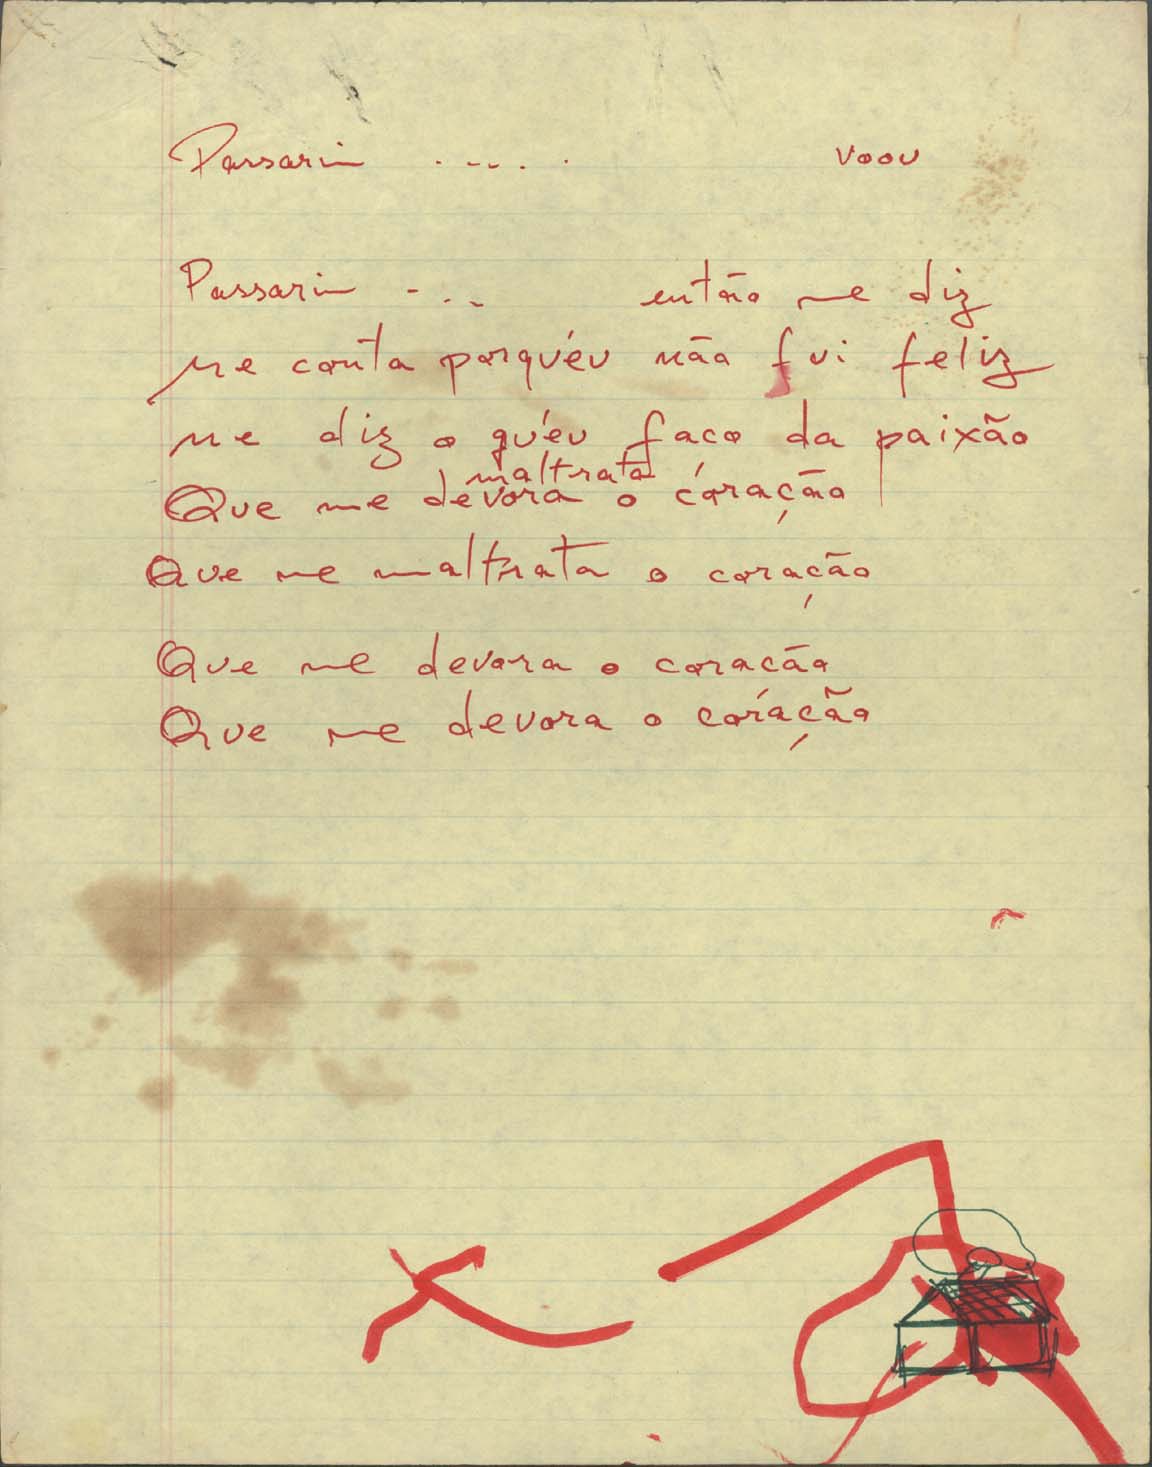 Passarim ..... voou
Passarim ... então me diz
Me conta porqu'eu não fui feliz
me diz o qu'eu faco da paixão
maltrata
Que me devora o coração
Que me maltrata o coração
Que me devora o coracão
Que me devora o coração